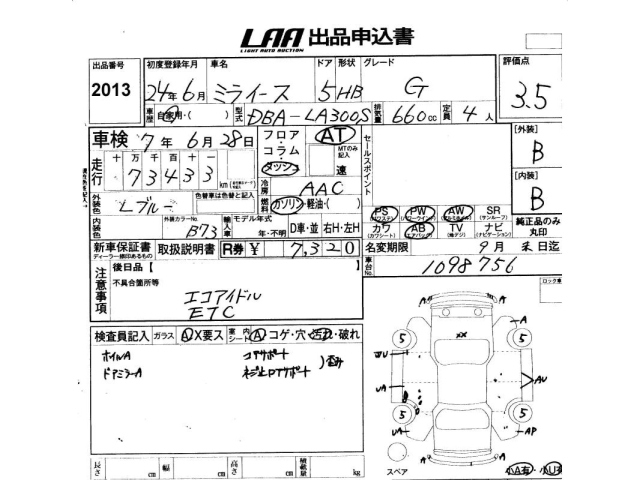 LAA 出品申込書
LIGHT AUTO AUCTION
出品番号 初度登録年月 車名 ドア 形状 グレード 評価点
2013 24年6月 ミライース 5 HB G 3.5
車歴 自家用・( ) 型式 DBA-LA300S 排気量 660cc 定員 4人
車検 7年6月28日 フロア・コラム・ダッシュ AT セールスポイント [外装]
MTのみ記入 速 B
走行 十万千百十 73433 km 冷房 AAC [内装]
外装色 Lブルー 色替車は色替と記入 燃料 ガソリン・軽油・( ) B
PS パワステ PW パワーウィンド AW アルミホイル SR サンルーフ
内装色 外装カラーNo. B73 輸入車 モデル年式 年・不明 D車・並 右H・左H カワ ワスシート AB エアバッグ TV ナビ ナビゲーション 純正品のみ丸印
新車保証書 取扱説明書 R券 ¥ 7,320 名変期限 9月末日迄
ディーラー捺印あるもの
注意事項 後日品【 】 車台No. 1098756
不具合箇所等 ロック車
エコアイドル
ETC
検査員記入 ガラス A X要ス 室内シート A コゲ・穴・汚れ・破れ
ホイルA コアサポート
ドアミラーA ネジ止PTサポート )歪み
A A
A
xx
5 5
UU
UA AU
5 5
UA AP
A A
スペア 小A有・小U有
長さ cm 幅 cm 高さ cm 積載量 kg